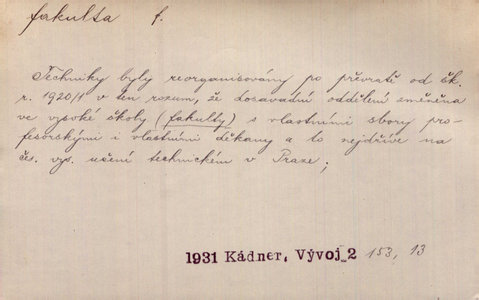 fakulta f.
Techniky byly reorganisovány po převratě od šk.
r. 1920/1 v ten rozum, že dosavadní oddělení změněna
ve vysoké školy (fakulty) s vlastními sbory pro-
fesorskými i vlastními děkany a to nejdříve na
čes. vys. učení technickém v Praze;
1931 Kádner, Vývoj 2 153, 13